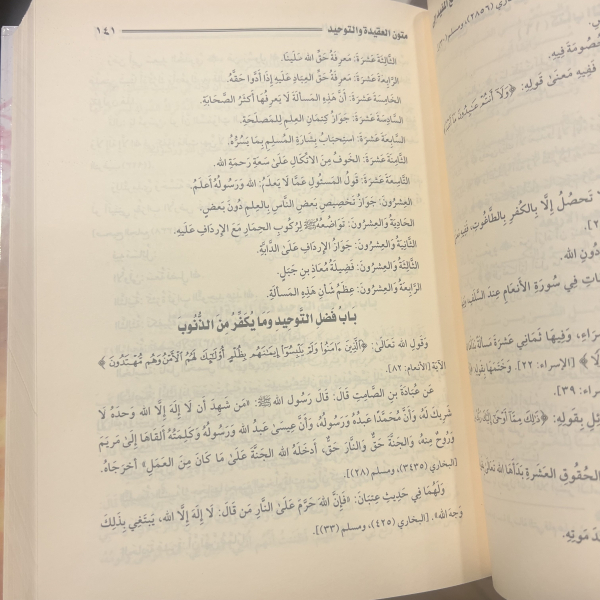 متون العقيدة والتوحيد ١٤١
الثَّالِثَةَ عَشْرَةَ: مَعرِفَةُ حَقِّ الله عَلَينَا.
الرَّابِعَةَ عَشْرَةَ: مَعرِفَةُ حَقِّ العِبَادِ عَلَيهِ إِذَا أَدَّوا حَقَّهُ.
الخَامِسَةَ عَشْرَةَ: أَنَّ هَذِهِ المَسأَلَةَ لَا يَعرِفُهَا أَكثَرُ الصَّحَابَةِ.
السَّادِسَةَ عَشْرَةَ: جَوَازُ كِتمَانِ العِلمِ لِلمَصلَحَةِ.
السَّابِعَةَ عَشْرَةَ: استِحبَابُ بِشَارَةِ المُسلِمِ بِمَا يَسُرُّهُ.
الثَّامِنَةَ عَشْرَةَ: الخَوفُ مِنَ الاتِّكَالِ عَلَى سَعَةِ رَحمَةِ الله.
التَّاسِعَةَ عَشْرَةَ: قَولُ المَسئُولِ عَمَّا لَا يَعلَمُ: الله وَرَسُولُهُ أَعلَمُ.
العِشرُونَ: جَوَازُ تَخصِيصِ بَعضِ النَّاسِ بِالعِلمِ دُونَ بَعضٍ.
الحَادِيَةُ وَالعِشرُونَ: تَوَاضُعُهُ ﷺ لِرُكُوبِ الحِمَارِ مَعَ الإِردَافِ عَلَيهِ.
الثَّانِيَةُ وَالعِشرُونَ: جَوَازُ الإِردَافِ عَلَى الدَّابَّةِ.
الثَّالِثَةُ وَالعِشرُونَ: فَضِيلَةُ مُعَاذِ بنِ جَبَلٍ.
الرَّابِعَةُ وَالعِشرُونَ: عِظَمُ شَأنِ هَذِهِ المَسأَلَةِ.
بَابُ فَضلِ التَّوحِيدِ وَمَا يُكَفِّرُ مِنَ الذُّنُوبِ
وَقَولِ الله تَعَالَى: ﴿الَّذِينَ ءَامَنُوا وَلَمْ يَلْبِسُوا إِيمَانَهُم بِظُلْمٍ أُولَٰئِكَ لَهُمُ الْأَمْنُ وَهُم مُّهْتَدُونَ﴾
الآيَةَ [الأنعام: ٨٢].
عَن عُبَادَةَ بنِ الصَّامِتِ قَالَ: قَالَ رَسُولُ الله ﷺ: «مَن شَهِدَ أَن لَا إِلَهَ إِلَّا الله وَحدَهُ لَا
شَرِيكَ لَهُ، وَأَنَّ مُحَمَّدًا عَبدُهُ وَرَسُولُهُ، وَأَنَّ عِيسَى عَبدُ الله وَرَسُولُهُ وَكَلِمَتُهُ أَلقَاهَا إِلَى مَريَمَ
وَرُوحٌ مِنهُ، وَالجَنَّةَ حَقٌّ وَالنَّارَ حَقٌّ، أَدخَلَهُ الله الجَنَّةَ عَلَى مَا كَانَ مِنَ العَمَلِ» أخرَجَاهُ.
[البخاري (٣٤٣٥)، ومسلم (٢٨)].
وَلَهُمَا فِي حَدِيثِ عِتبَانَ: «فَإِنَّ الله حَرَّمَ عَلَى النَّارِ مَن قَالَ: لَا إِلَهَ إِلَّا الله، يَبتَغِي بِذَلِكَ
وَجهَ الله». [البخاري (٤٢٥)، ومسلم (٣٣)].
(٢٨٥٦)، ومسلم
خُصُومَةً فِيهِ.
فَفِيهِ مَعنَى قَولِهِ: ﴿وَلَا أَنتُمْ عَابِدُونَ
لَا تَحصُلُ إِلَّا بِالكُفرِ بِالطَّاغُوتِ،
دُونِ الله.
فِي سُورَةِ الأَنعَامِ عِندَ السَّلَفِ
وَفِيهَا ثَمَانِي عَشْرَةَ مَسأَلَةً
[الإسراء: ٢٢]. وَخَتَمَهَا بِقَولِهِ
٣٩].
بِقَولِهِ: ﴿ذَلِكَ مِمَّا أَوْحَى إِلَيْكَ
الحُقُوقِ العَشَرَةِ بَدَأَهَا الله تَعَالَى
مَوتِهِ.